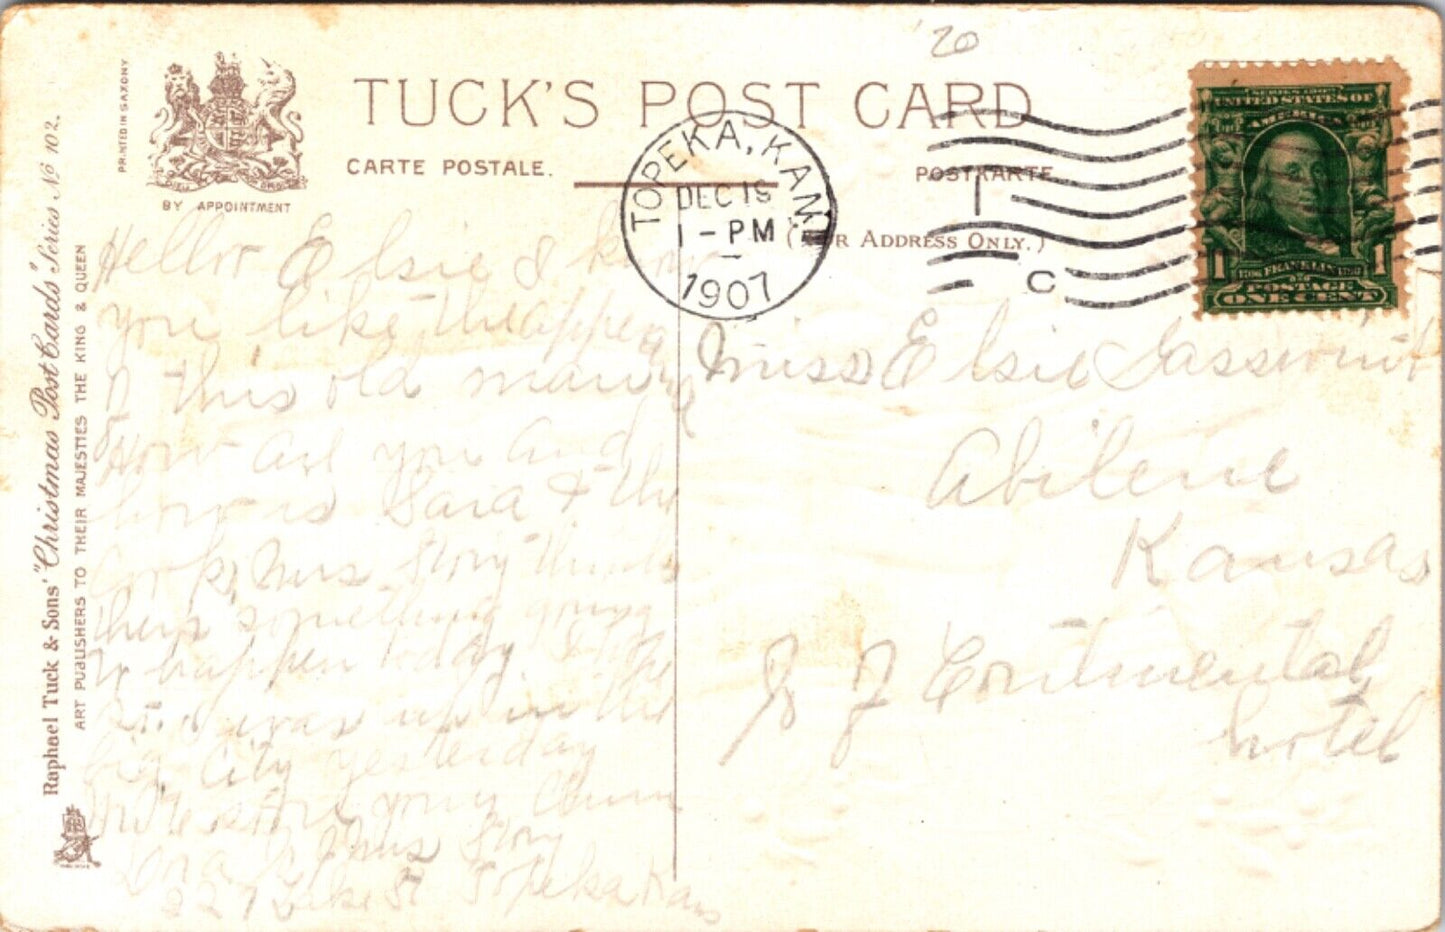 20
TUCK'S POST CARD
CARTE POSTALE.
POSTKARTE
(For Address Only.)
PRINTED IN SAXONY
BY APPOINTMENT
Raphael Tuck & Sons' "Christmas Post Cards" Series No 102.
ART PUBLISHERS TO THEIR MAJESTIES THE KING & QUEEN
TOPEKA, KAN.
DEC 18
1-PM
1907
C
SERIES 1902
UNITED STATES OF
AMERICA
1 1
1706 FRANKLIN 1790
POSTAGE
ONE CENT
Hello Elsie I know
you like the appea
of this old man
How are you and
how is Sara & the
Cook, Mrs Story thinks
there something going
to happen today. I
was up in the
big City yesterday
Write soon your Chum
Ora Mrs Story
227 Lake St Topeka Kans
Miss Elsie
Abilene
Kansas
Continental
hotel